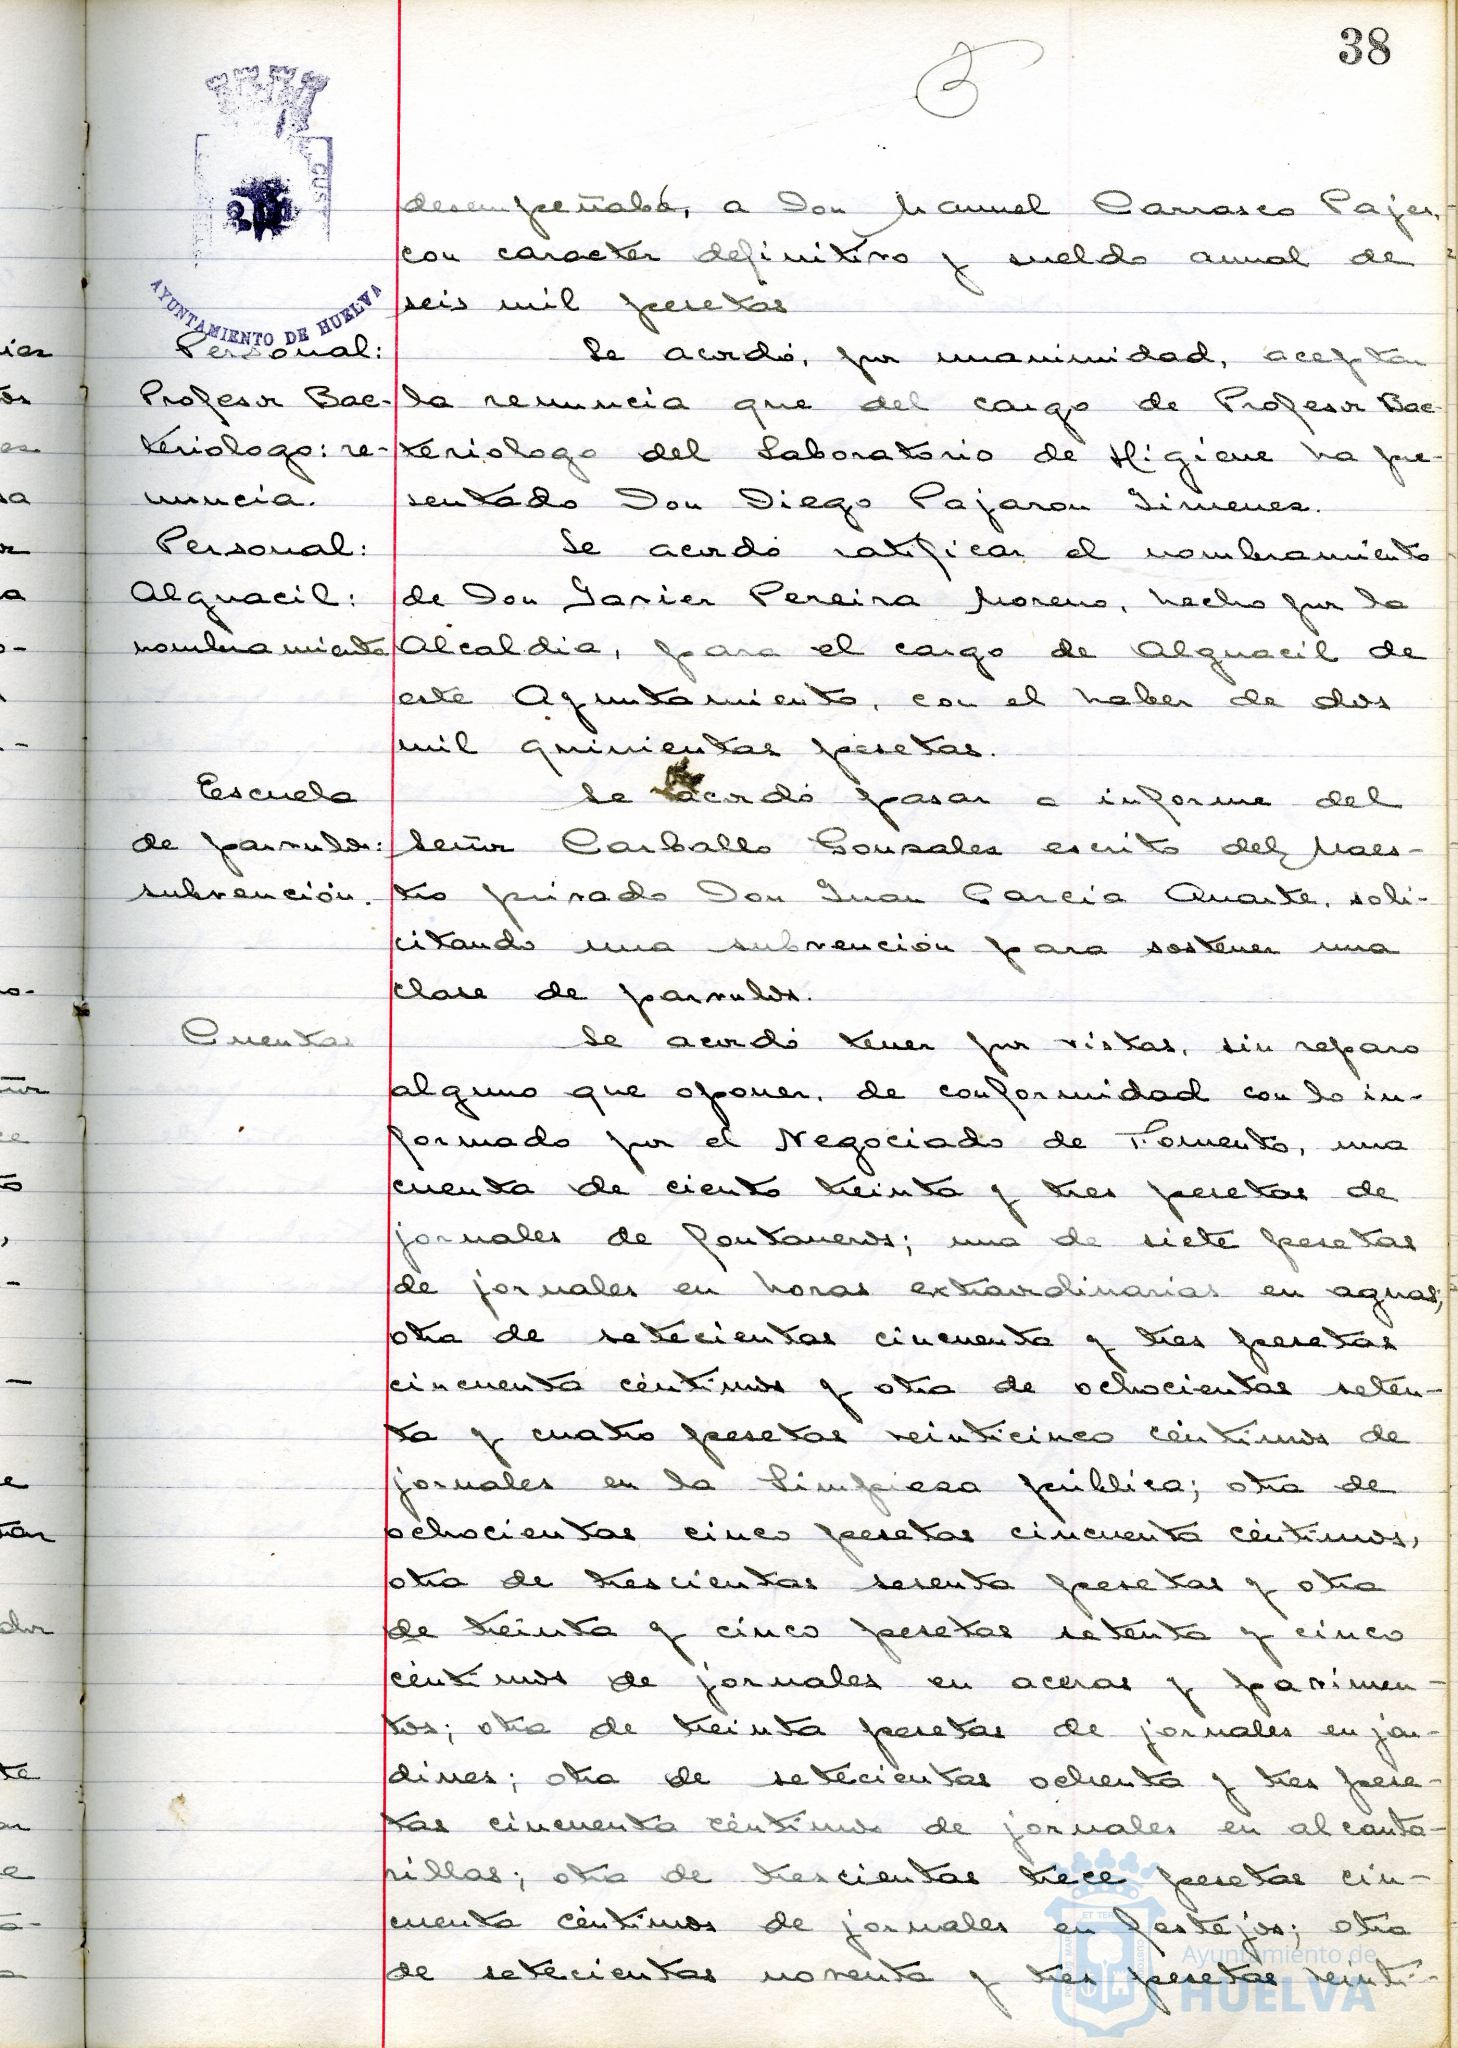 38
AYUNTAMIENTO DE HUELVA
desempeñaba, a Don Manuel Carrasco Pajes,
con caracter definitivo y sueldo anual de
seis mil pesetas
Personal:
Profesor Bac-
teriologo: re-
nuncia.
Se acordó, por unanimidad, aceptar
la renuncia que del cargo de Profesor Bac-
teriologo del Laboratorio de Higiene ha pre-
sentado Don Diego Pajaron Jimenez.
Personal:
Alguacil:
nombramiento
Se acordó ratificar el nombramiento
de Don Javier Pereira Moreno, hecho por la
Alcaldia, para el cargo de Alguacil de
este Ayuntamiento, con el haber de dos
mil quinientas pesetas.
Escuela
de parvulos:
subvención.
Se acordó pasar a informe del
Señor Carballo Gonzalez escrito del Maes-
tro privado Don Juan Garcia Anarte, soli-
citando una subvención para sostener una
clase de parvulos.
Cuentas
Se acordó tener por vistas, sin reparo
alguno que oponer, de conformidad con lo in-
formado por el Negociado de Fomento, una
cuenta de ciento treinta y tres pesetas de
jornales de fontaneros; una de siete pesetas
de jornales en horas extraordinarias en aguas;
otra de setecientas cincuenta y tres pesetas
cincuenta céntimos y otra de ochocientas seten-
ta y cuatro pesetas veinticinco céntimos de
jornales en la limpieza pública; otra de
ochocientas cinco pesetas cincuenta céntimos,
otra de trescientas sesenta pesetas y otra
de treinta y cinco pesetas setenta y cinco
céntimos de jornales en aceras y pavimen-
tos; otra de treinta pesetas de jornales en jar-
dines; otra de setecientas ochenta y tres pese-
tas cincuenta céntimos de jornales en alcanta-
rillas; otra de trescientas trece pesetas cin-
cuenta céntimos de jornales en festejos; otra
de setecientas noventa y tres pesetas veinti-
Ayuntamiento de
HUELVA